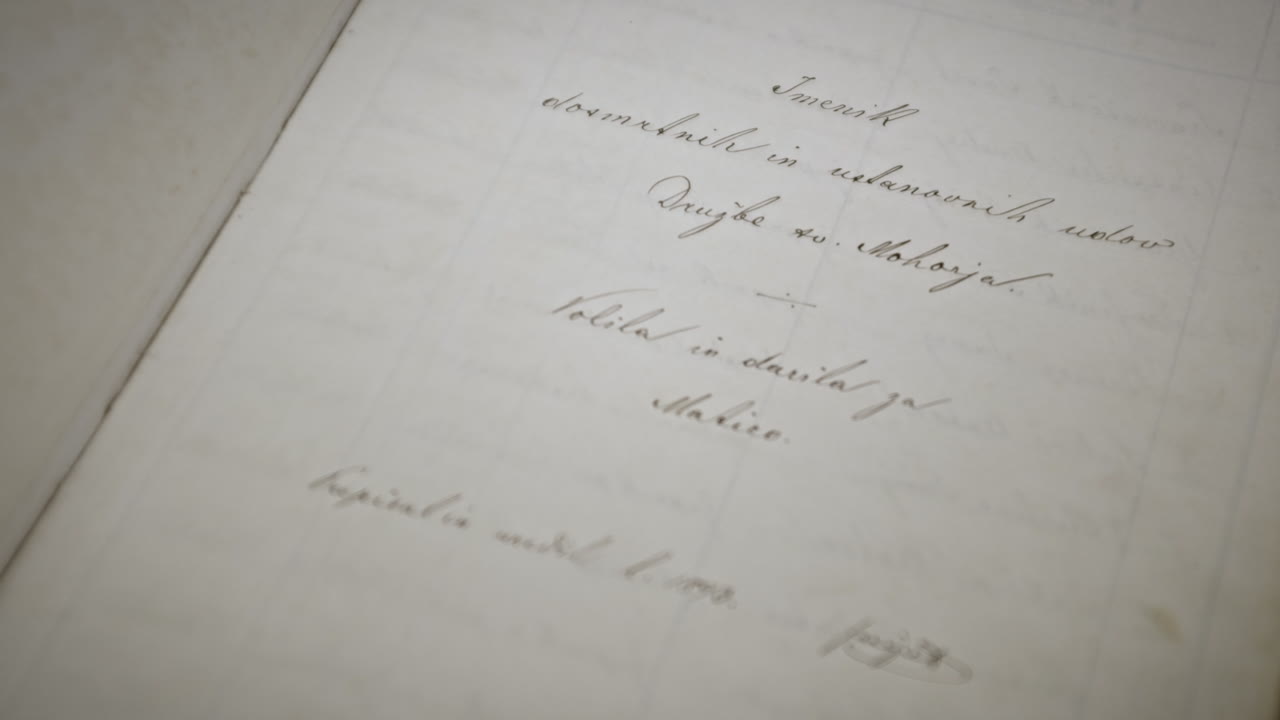 Imenik
dosmrtnih in ustanovnih udov
Družbe sv. Mohorja.
Volila in darila za
Matico.
Prepisal in uredil l. 1898.